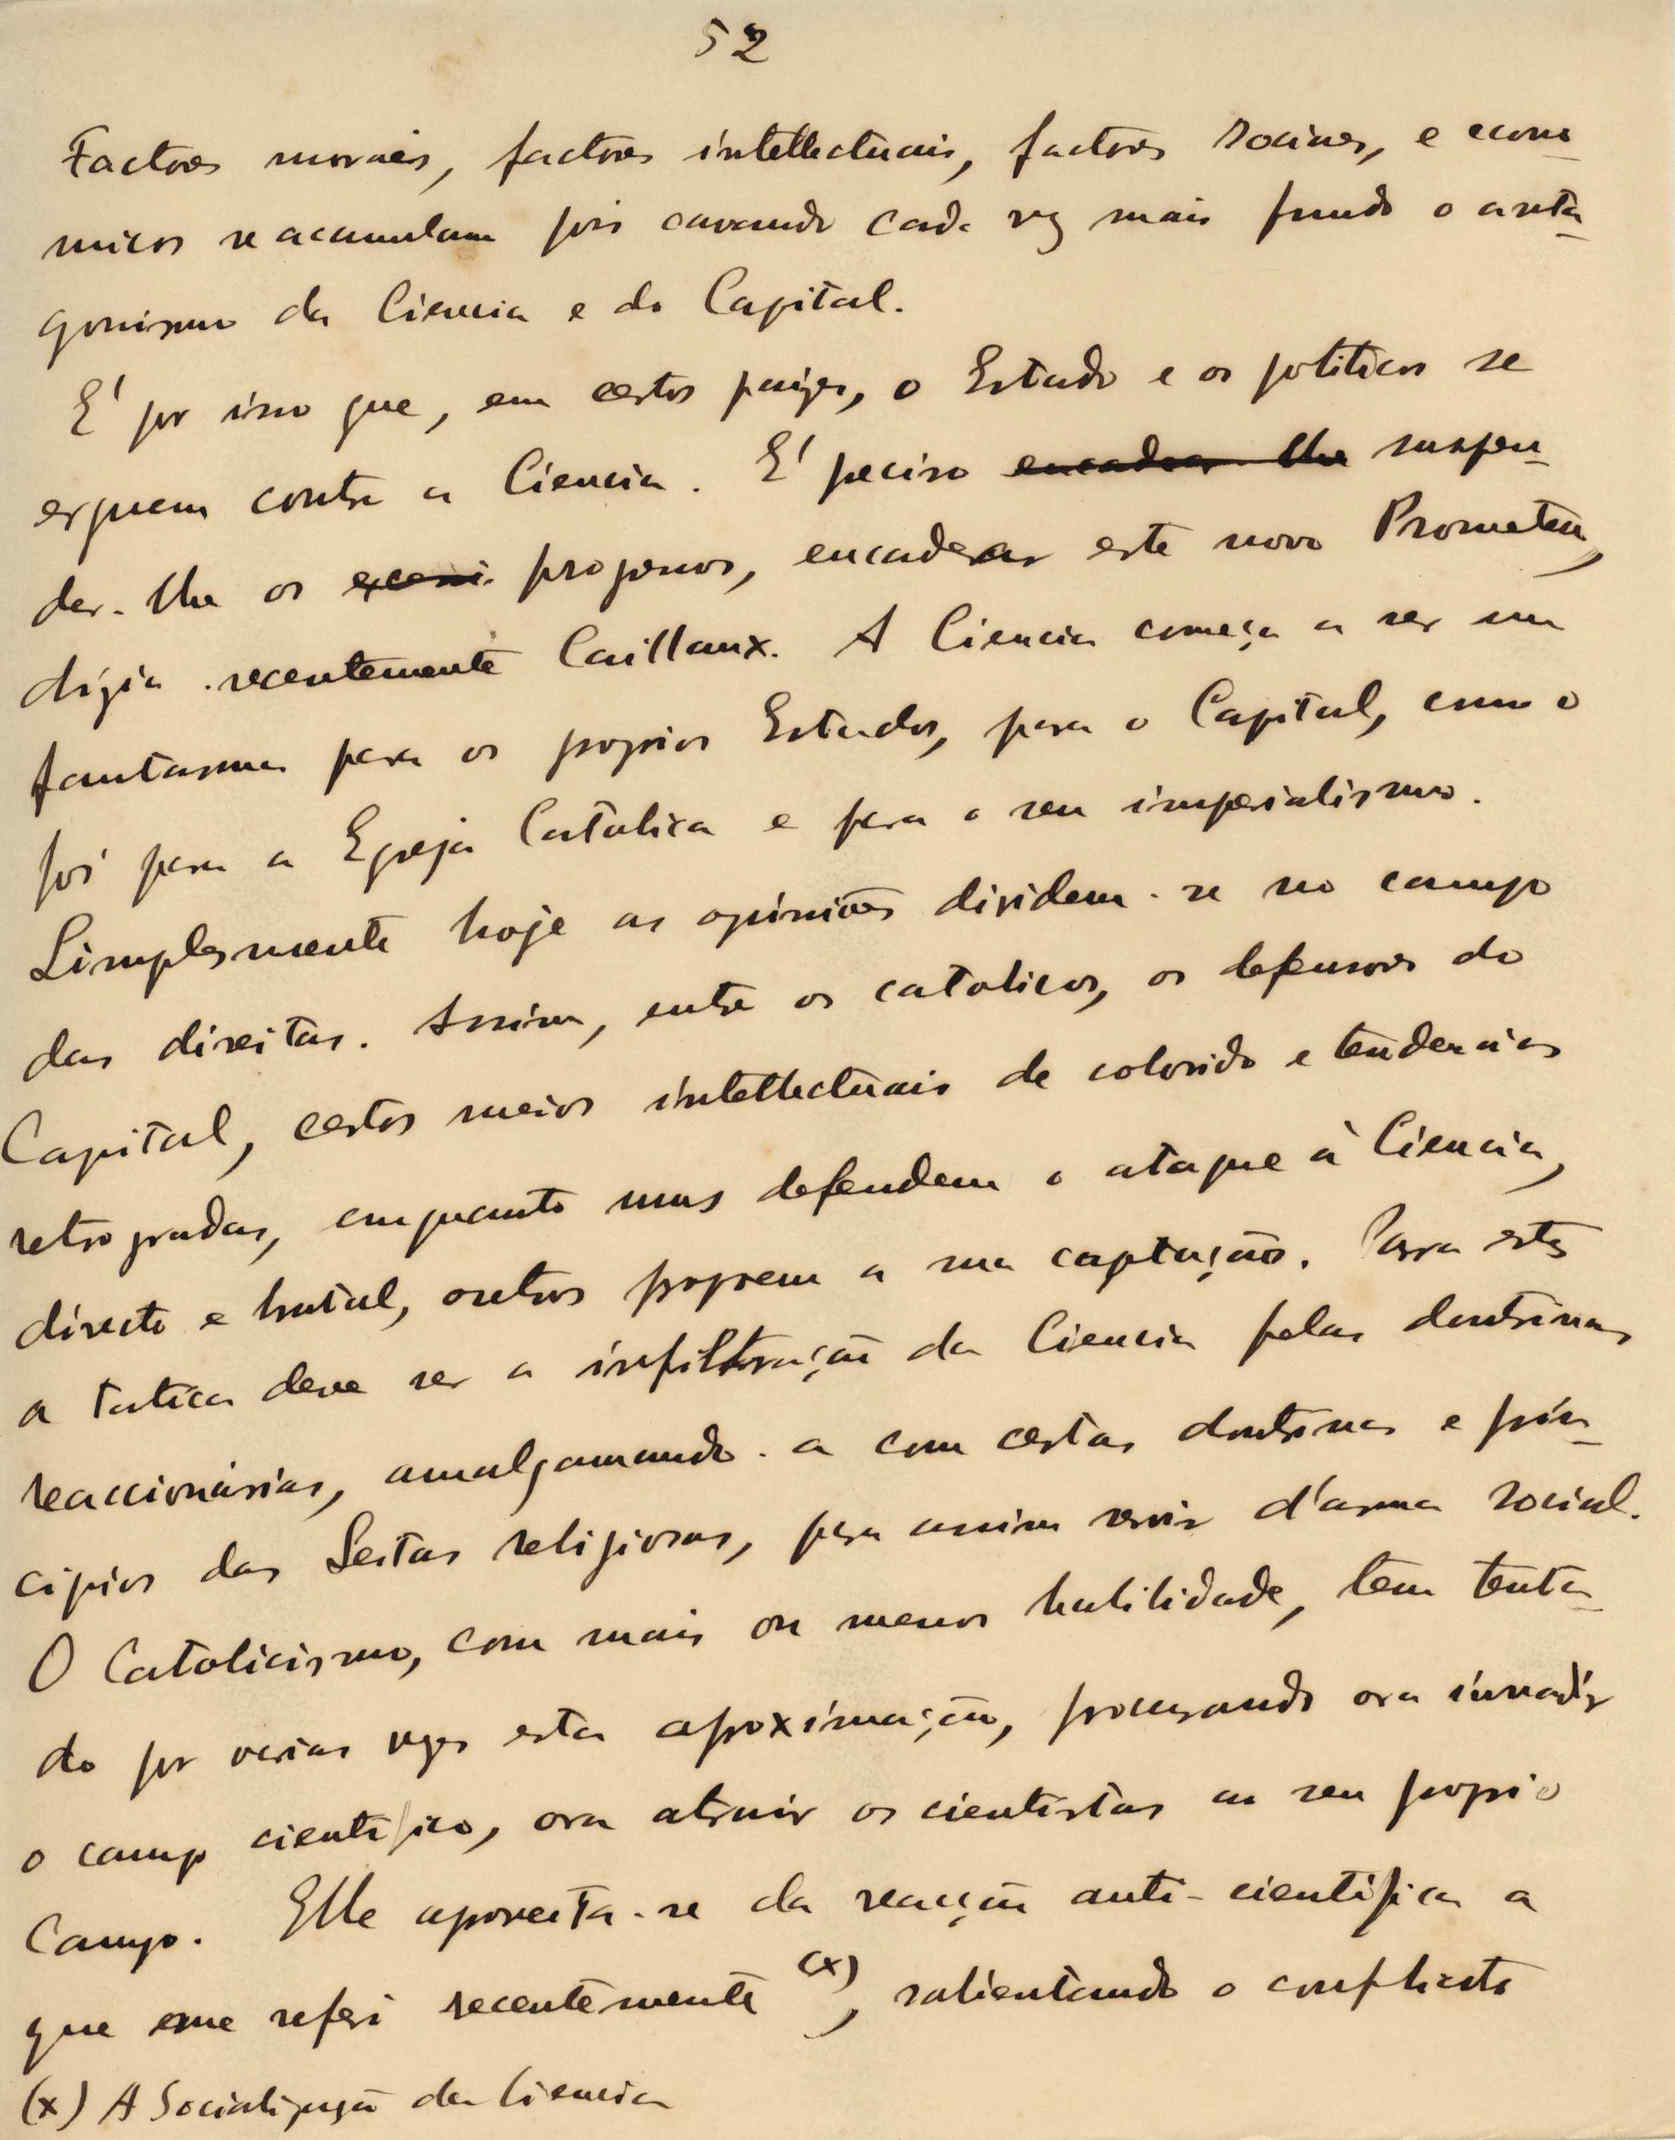 52
Factores moraes, factores intellectuais, factores sociaes, e econo-
micos se acumulam pois cavando cada vez mais fundo o anta-
gonismo da Ciencia e do Capital.
E' por isso que, em certos paizes, o Estado e os politicos se
erguem contra a Ciencia. E' preciso encadear-lhe suspen-
der-lhe os progressos, encadear este novo Prometeu,
dizia recentemente Caillaux. A Ciencia começa a ser um
fantasma para os proprios Estados, para o Capital, como o
foi para a Egreja Catolica e para o seu imperialismo.
Simplesmente hoje as opiniões dividem-se no campo
das direitas. Assim, entre os catolicos, os defensores do
Capital, certos meios intellectuais de colorido e tendencias
retrogradas, emquanto uns defendem o ataque à Ciencia,
directo e brutal, outros propoem a sua captação. Para estes
a tactica deve ser a infiltração da Ciencia pelas doutrinas
reaccionárias, amalgamando-a com certas doutrinas e prin-
cipios das Seitas religiosas, para assim servir d'arma social.
O Catolicismo, com mais ou menos habilidade, tem tenta-
do por varias vezes esta aproximação, procurando ora invadir
o campo cientifico, ora atrair os cientistas ao seu proprio
Campo. Elle aproveita-se da reacção anti-cientifica a
que me referi recentemente (x), salientando o conflicto
(x) A Socialização da Ciencia